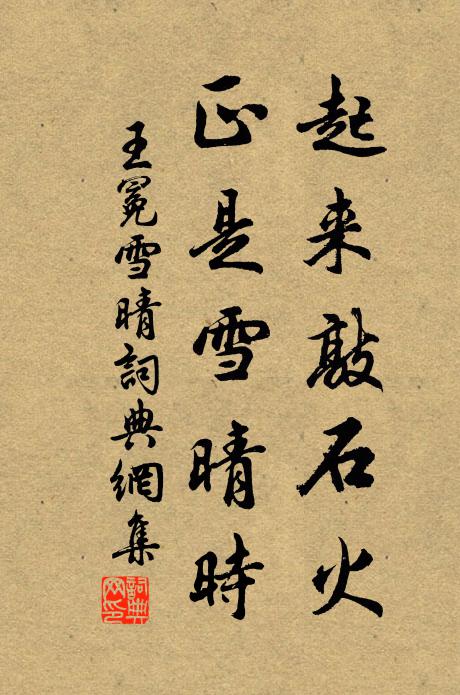 起来敲石火
正是雪晴時
王冕雪晴詞典網集
詞典網印